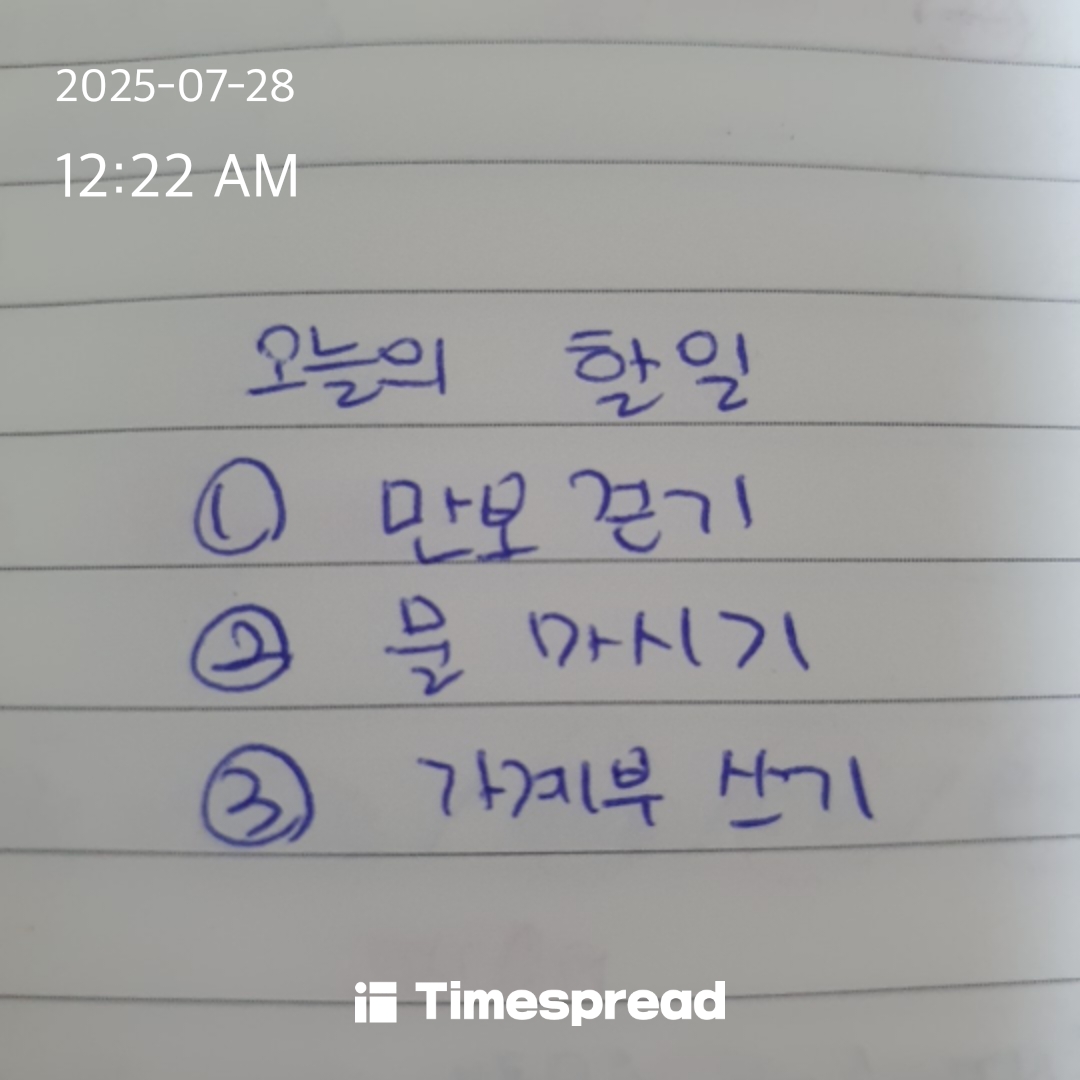 2025-07-28
12:22 AM
오늘의 할일
① 만보 걷기
② 물 마시기
③ 가계부 쓰기
Timespread